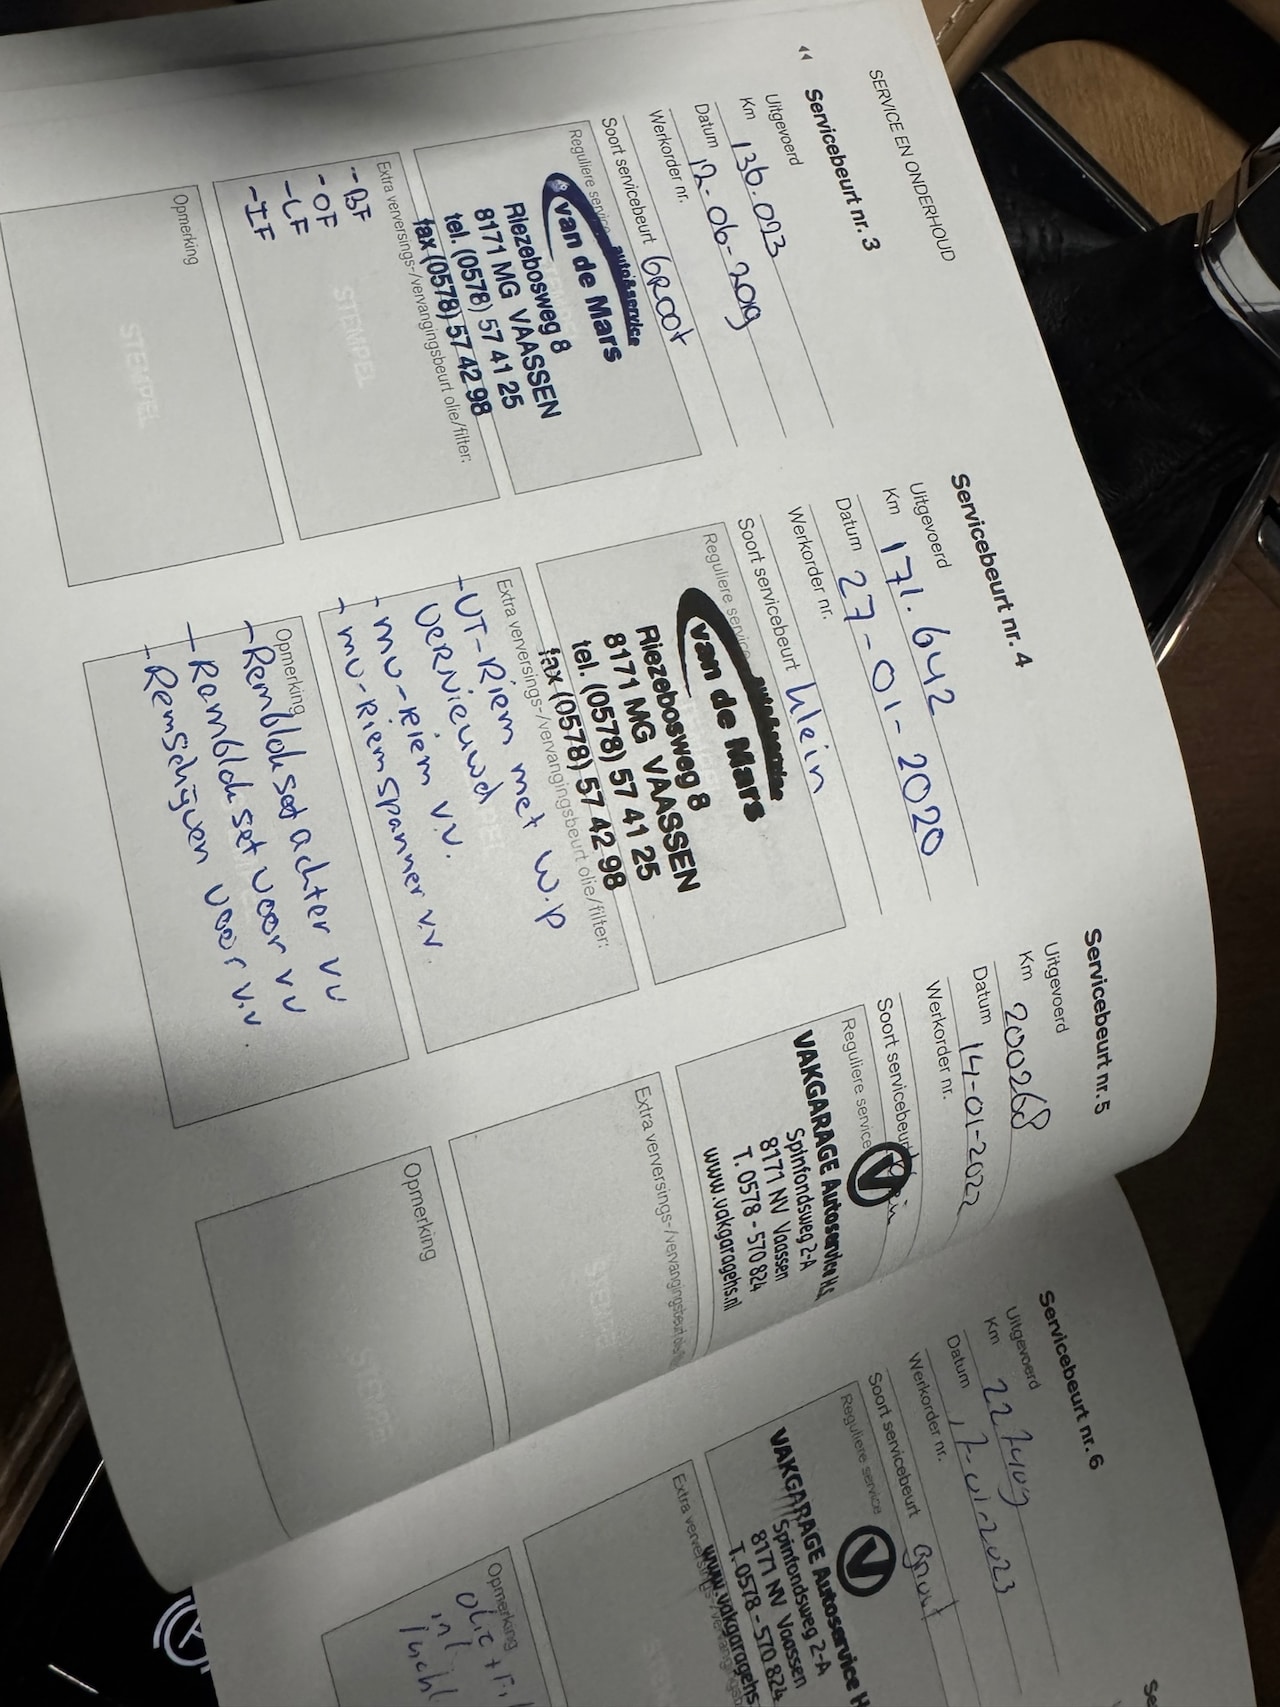 SERVICE EN ONDERHOUD
Servicebeurt nr. 3
Uitgevoerd
Km 136.023
Datum 12-06-2019
Werkorder nr.
Soort servicebeurt GROOT
Reguliere service
auto&service
van de Mars
Riezebosweg 8
8171 MG VAASSEN
tel. (0578) 57 41 25
fax (0578) 57 42 98
Extra verversings-/vervangingsbeurt olie/filter:
- BF
- OF
- LF
- IF
STEMPEL
Opmerking
STEMPEL
Servicebeurt nr. 4
Uitgevoerd
Km 171.642
Datum 27-01-2020
Werkorder nr.
Soort servicebeurt klein
Reguliere service
van de Mars
Riezebosweg 8
8171 MG VAASSEN
tel. (0578) 57 41 25
fax (0578) 57 42 98
Extra verversings-/vervangingsbeurt olie/filter:
- UT-Riem met W.P
VERNIEUWD
- MU-Riem V.V.
- MU-Riemspanner V.V.
Opmerking
- Remblokset achter VV
- Remblokset voor VV
- Remschijven voor V.V
Servicebeurt nr. 5
Uitgevoerd
Km 200268
Datum 14-01-2022
Werkorder nr.
Soort servicebeurt
Reguliere service
VAKGARAGE Autoservice
Spinfondsweg 2-A
8171 NV Vaassen
T. 0578 - 570 824
www.vakgaragehs.nl
Extra verversings-/vervangingsbeurt
STEMPEL
Opmerking
STEMPEL
Servicebeurt nr. 6
Uitgevoerd
Km
Datum
Werkorder nr.
Soort servicebeurt groot
Reguliere service
VAKGARAGE Autoservice
Spinfondsweg 2-A
8171 NV Vaassen
T. 0578 - 570 824
www.vakgaragehs
Opmerking
olie +